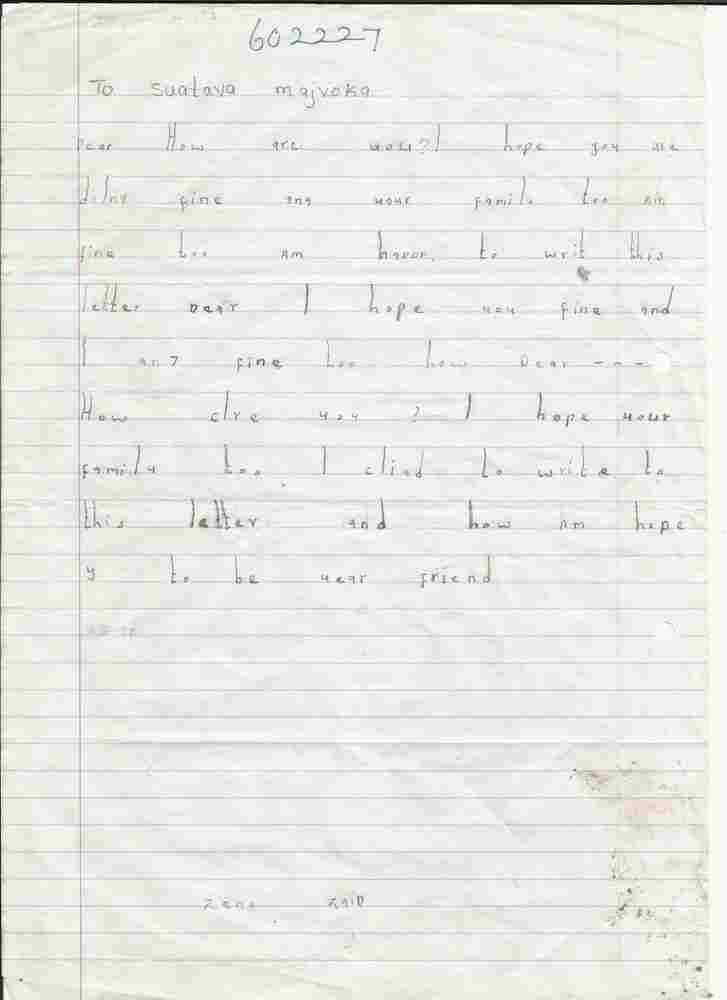 602227
To Suatava majvoka
Dear How are you? I hope you are
doing fine and your family too am
fine too am happy to writ this
letter Dear I hope you fine and
I am fine too how Dear ---
How are you ? I hope your
family too. I glad to write to
this letter and how Am hope
y to be year friend